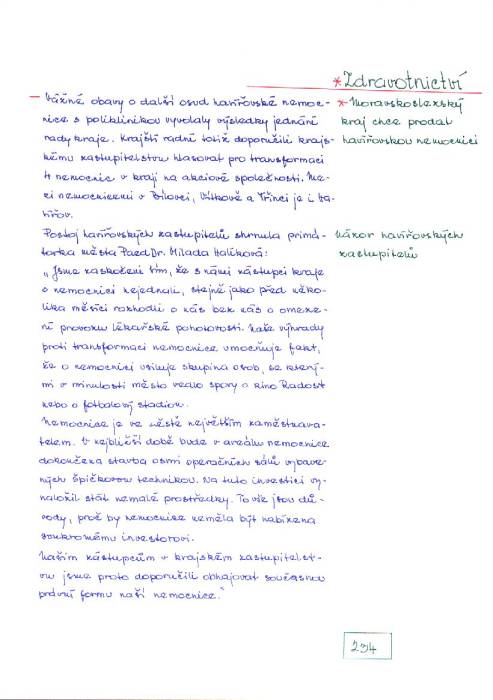 * Zdravotnictví
Vážné obavy o další osud havířovské nemoc-
nice s poliklinikou vyvolaly výsledky jednání
rady kraje. Krajští radní totiž doporučili krajs-
kému zastupitelstvu hlasovat pro transformaci
4 nemocnic v kraji na akciové společnosti. Me-
zi nemocnicemi v Bílovci, Vítkově a Třinci je i Ha-
vířov.
* Moravskoslezský
kraj chce prodat
havířovskou nemocnici
Postoj havířovských zastupitelů shrnula primá-
torka města PaedDr. Milada Halíková:
Názor havířovských
zastupitelů
„Jsme zaskočeni tím, že s námi zástupci kraje
o nemocnici nejednali, stejně jako před něko-
lika měsíci rozhodli o nás bez nás o omeze-
ní provozu lékařské pohotovosti. Naše výhrady
proti transformaci nemocnice umocňuje fakt,
že o nemocnici usiluje skupina osob, se který-
mi v minulosti město vedlo spory o kino Radost
nebo o fotbalový stadion.
Nemocnice je ve městě největším zaměstnava-
telem. V nejbližší době bude v areálu nemocnice
dokončena stavba osmi operačních sálů vybave-
ných špičkovou technikou. Na tuto investici vy-
naložil stát nemalé prostředky. To vše jsou dů-
vody, proč by nemocnice neměla být nabízena
soukromému investorovi.
Našim zástupcům v krajském zastupitelst-
vu jsme proto doporučili obhajovat současnou
právní formu naší nemocnice."
234